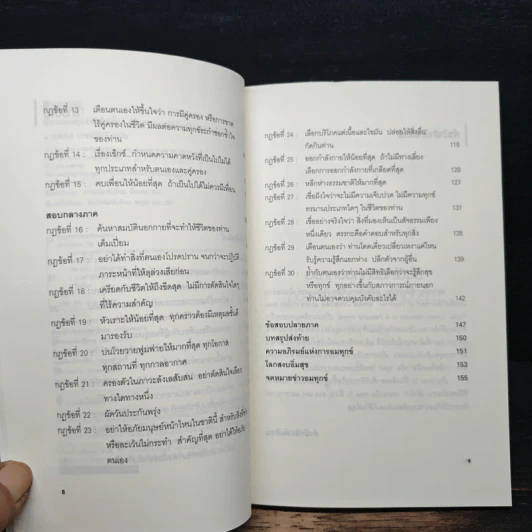 กฎข้อที่ 13 : เตือนตนเองให้ขึ้นใจว่า การมีคู่ครอง หรือการขาด
ไร้คู่ครองในชีวิต มีผลต่อความทุกข์ระกำชอกช้ำใจ
ของท่าน
กฎข้อที่ 14 : เรื่องเซ็กซ์ กำหนดความคาดหวังที่เป็นไปไม่ได้
ทุกประเภทสำหรับตนเองและคู่ครอง
กฎข้อที่ 15 : คบเพื่อนให้น้อยที่สุด ถ้าเป็นไปได้ไม่ควรมีเพื่อน
สอบกลางภาค
กฎข้อที่ 16 : ค้นหาสมบัตินอกกายที่จะทำให้ชีวิตท่าน
เต็มเปี่ยม
กฎข้อที่ 17 : อย่าได้ทำสิ่งที่ตนเองโปรดปราน จนกว่าจะปฏิบัติ
ภาระหน้าที่ให้ลุล่วงเสียก่อน
กฎข้อที่ 18 : เครียดกับชีวิตให้ถึงขีดสุด ไม่มีการตัดสินใจใดๆ
ที่ไร้ความสำคัญ
กฎข้อที่ 19 : หัวเราะให้น้อยที่สุด ทุกคราวต้องมีเหตุผลชั้นดี
มารองรับ
กฎข้อที่ 20 : บ่นโวยวายฟูมฟายให้มากที่สุด ทุกโอกาส
ทุกสถานที่ ทุกกาลอากาศ
กฎข้อที่ 21 : ครองตัวในภาวะลังเลสับสน อย่าตัดสินใจเลือก
ทางใดทางหนึ่ง
กฎข้อที่ 22 : ผัดวันประกันพรุ่ง
กฎข้อที่ 23 : อย่าให้อภัยมนุษย์หน้าไหนในชาตินี้ สำหรับสิ่งที่
หรือละเว้นไม่กระทำ สำคัญที่สุด อย่าได้ให้อภัย
ตนเอง
8
กฎข้อที่ 24 : เลือกบริโภคแต่เนื้อและไขมัน ปล่อยให้สิ่งอื่น
กัดกินท่าน 116
กฎข้อที่ 25 : ออกกำลังกายให้น้อยที่สุด ถ้าไม่มีทางเลี่ยง
เลือกการออกกำลังกายที่เกลียดที่สุด 120
กฎข้อที่ 26 : หลีกห่างธรรมชาติให้มากที่สุด 127
กฎข้อที่ 27 : เชื่อฝังใจว่าจะไม่มีความเจ็บปวด ไม่มีความทุกข์
ทรมานประเภทใดๆ ในชีวิตของท่าน 131
กฎข้อที่ 28 : เชื่ออย่างจริงใจว่า สิ่งที่มองเห็นเป็นสัจธรรมเพียง
หนึ่งเดียว ตรรกะคือคำตอบสำหรับทุกสิ่ง 135
กฎข้อที่ 29 : เตือนตนเองว่า ท่านโดดเดี่ยวเปลี่ยวเหงาแค่ไหน
รับรู้ความรู้สึกแยกห่าง ปลีกตัวจากผู้อื่น 139
กฎข้อที่ 30 : ย้ำกับตนเองว่าท่านไม่มีสิทธิเลือกว่าจะรู้สึกสุข
หรือทุกข์ ทุกอย่างขึ้นกับสภาวการณ์ภายนอก
ท่านไม่อาจควบคุมบังคับอะไรได้ 142
ข้อสอบปลายภาค 147
บทสรุปส่งท้าย 150
ความอภิรมย์แห่งการอมทุกข์ 151
โลกสงบอิ่มสุข 153
จดหมายข่าวอมทุกข์ 155
9